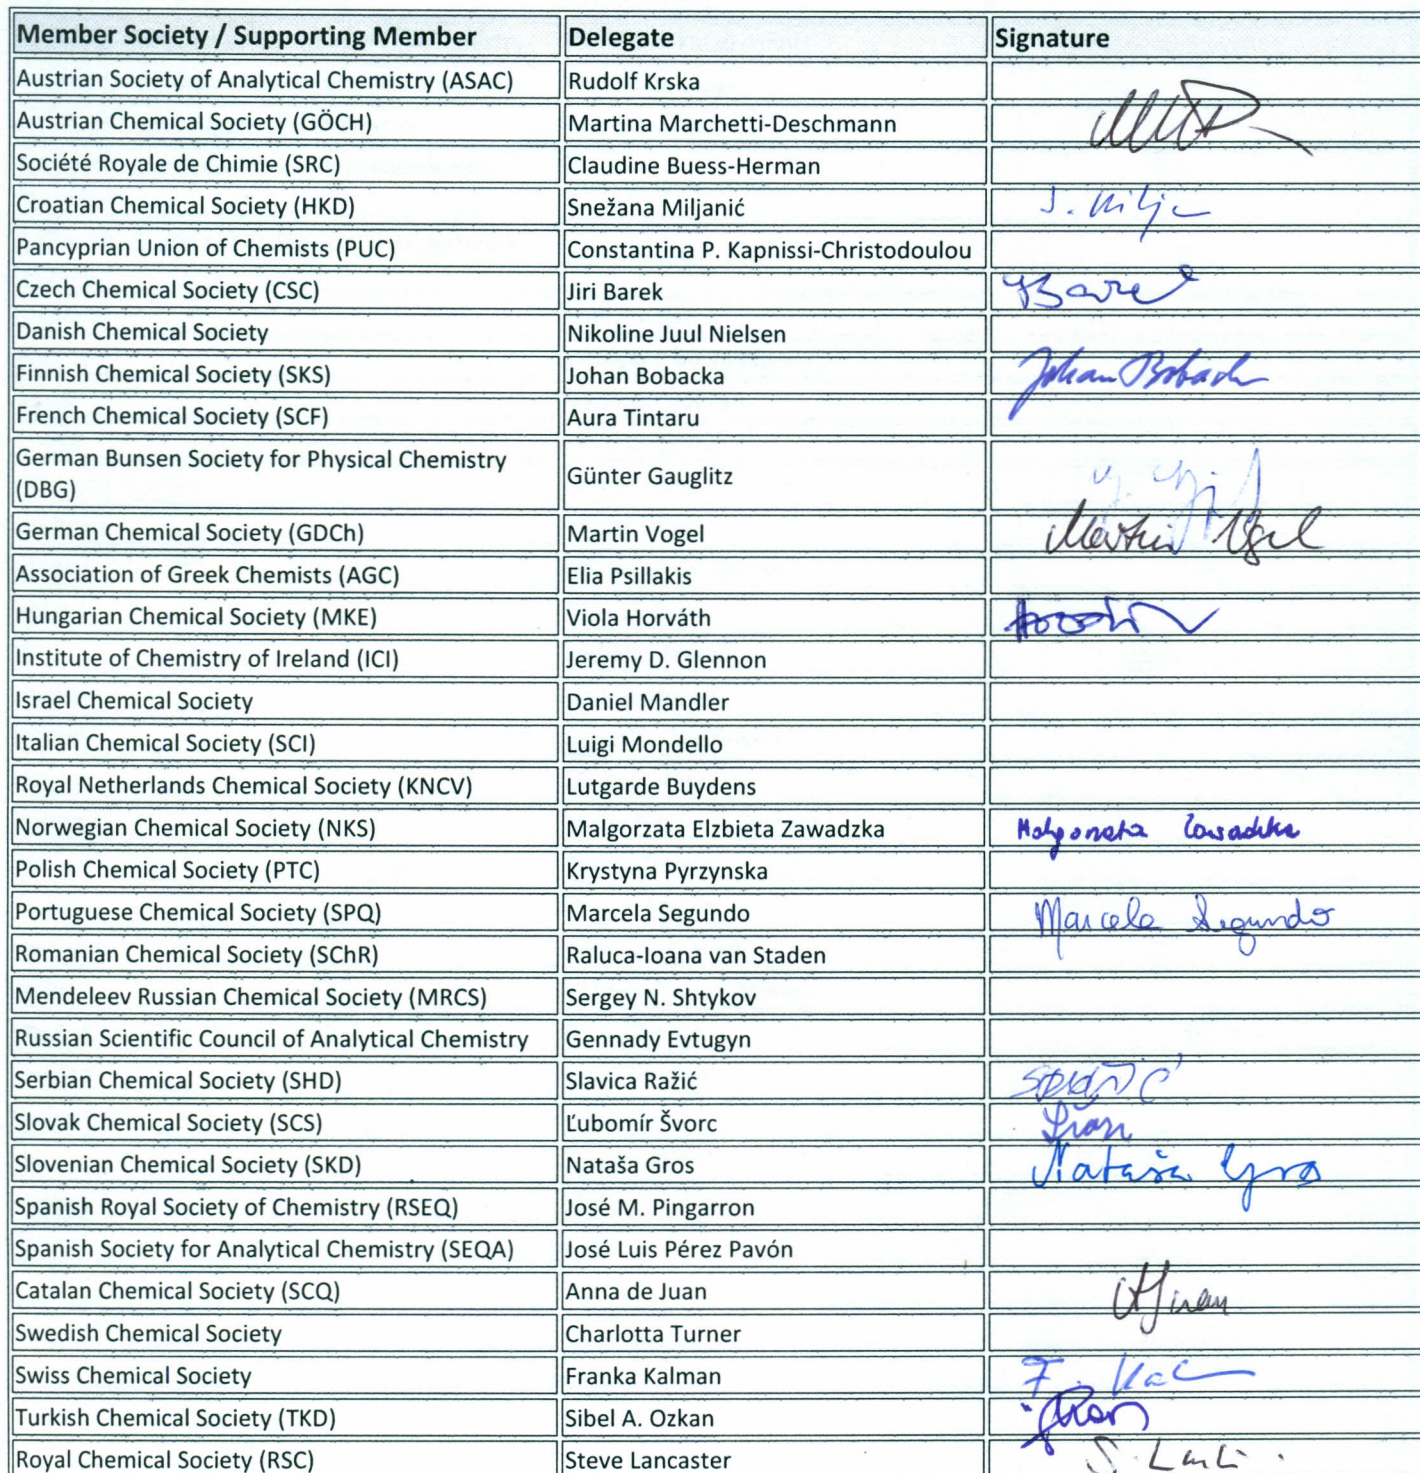 Member Society / Supporting Member Delegate Signature
Austrian Society of Analytical Chemistry (ASAC) Rudolf Krska
Austrian Chemical Society (GÖCH) Martina Marchetti-Deschmann
Société Royale de Chimie (SRC) Claudine Buess-Herman
Croatian Chemical Society (HKD) Snežana Miljanić
Pancyprian Union of Chemists (PUC) Constantina P. Kapnissi-Christodoulou
Czech Chemical Society (CSC) Jiri Barek
Danish Chemical Society Nikoline Juul Nielsen
Finnish Chemical Society (SKS) Johan Bobacka Johan
French Chemical Society (SCF) Aura Tintaru
German Bunsen Society for Physical Chemistry
(DBG) Günter Gauglitz
German Chemical Society (GDCh) Martin Vogel Martin Vogel
Association of Greek Chemists (AGC) Elia Psillakis
Hungarian Chemical Society (MKE) Viola Horváth
Institute of Chemistry of Ireland (ICI) Jeremy D. Glennon
Israel Chemical Society Daniel Mandler
Italian Chemical Society (SCI) Luigi Mondello
Royal Netherlands Chemical Society (KNCV) Lutgarde Buydens
Norwegian Chemical Society (NKS) Malgorzata Elzbieta Zawadzka Malgorzata Zawadzka
Polish Chemical Society (PTC) Krystyna Pyrzynska
Portuguese Chemical Society (SPQ) Marcela Segundo Marcela Segundo
Romanian Chemical Society (SChR) Raluca-Ioana van Staden
Mendeleev Russian Chemical Society (MRCS) Sergey N. Shtykov
Russian Scientific Council of Analytical Chemistry Gennady Evtugyn
Serbian Chemical Society (SHD) Slavica Ražić
Slovak Chemical Society (SCS) Ľubomír Švorc
Slovenian Chemical Society (SKD) Nataša Gros Nataša Gros
Spanish Royal Society of Chemistry (RSEQ) José M. Pingarron
Spanish Society for Analytical Chemistry (SEQA) José Luis Pérez Pavón
Catalan Chemical Society (SCQ) Anna de Juan
Swedish Chemical Society Charlotta Turner
Swiss Chemical Society Franka Kalman
Turkish Chemical Society (TKD) Sibel A. Ozkan
Royal Chemical Society (RSC) Steve Lancaster